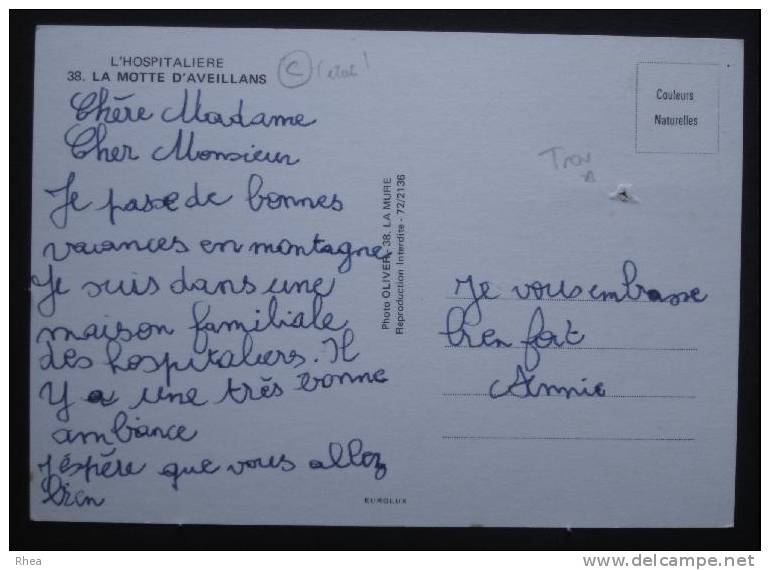 L'HOSPITALIERE
38. LA MOTTE D'AVEILLANS
C
Couleurs
Naturelles
Chère Madame
Cher Monsieur
Je passe de bonnes
vacances en montagne
Je suis dans une
maison familiale
des hospitaliers. Il
Y a une très bonne
ambiance
J'éspère que vous allez
bien
Photo OLIVER - 38. LA MURE
Reproduction Interdite - 72/2136
Trou
Je vous embrasse
bien fort
Annie
EUROLUX
Rhea
delcampe.net